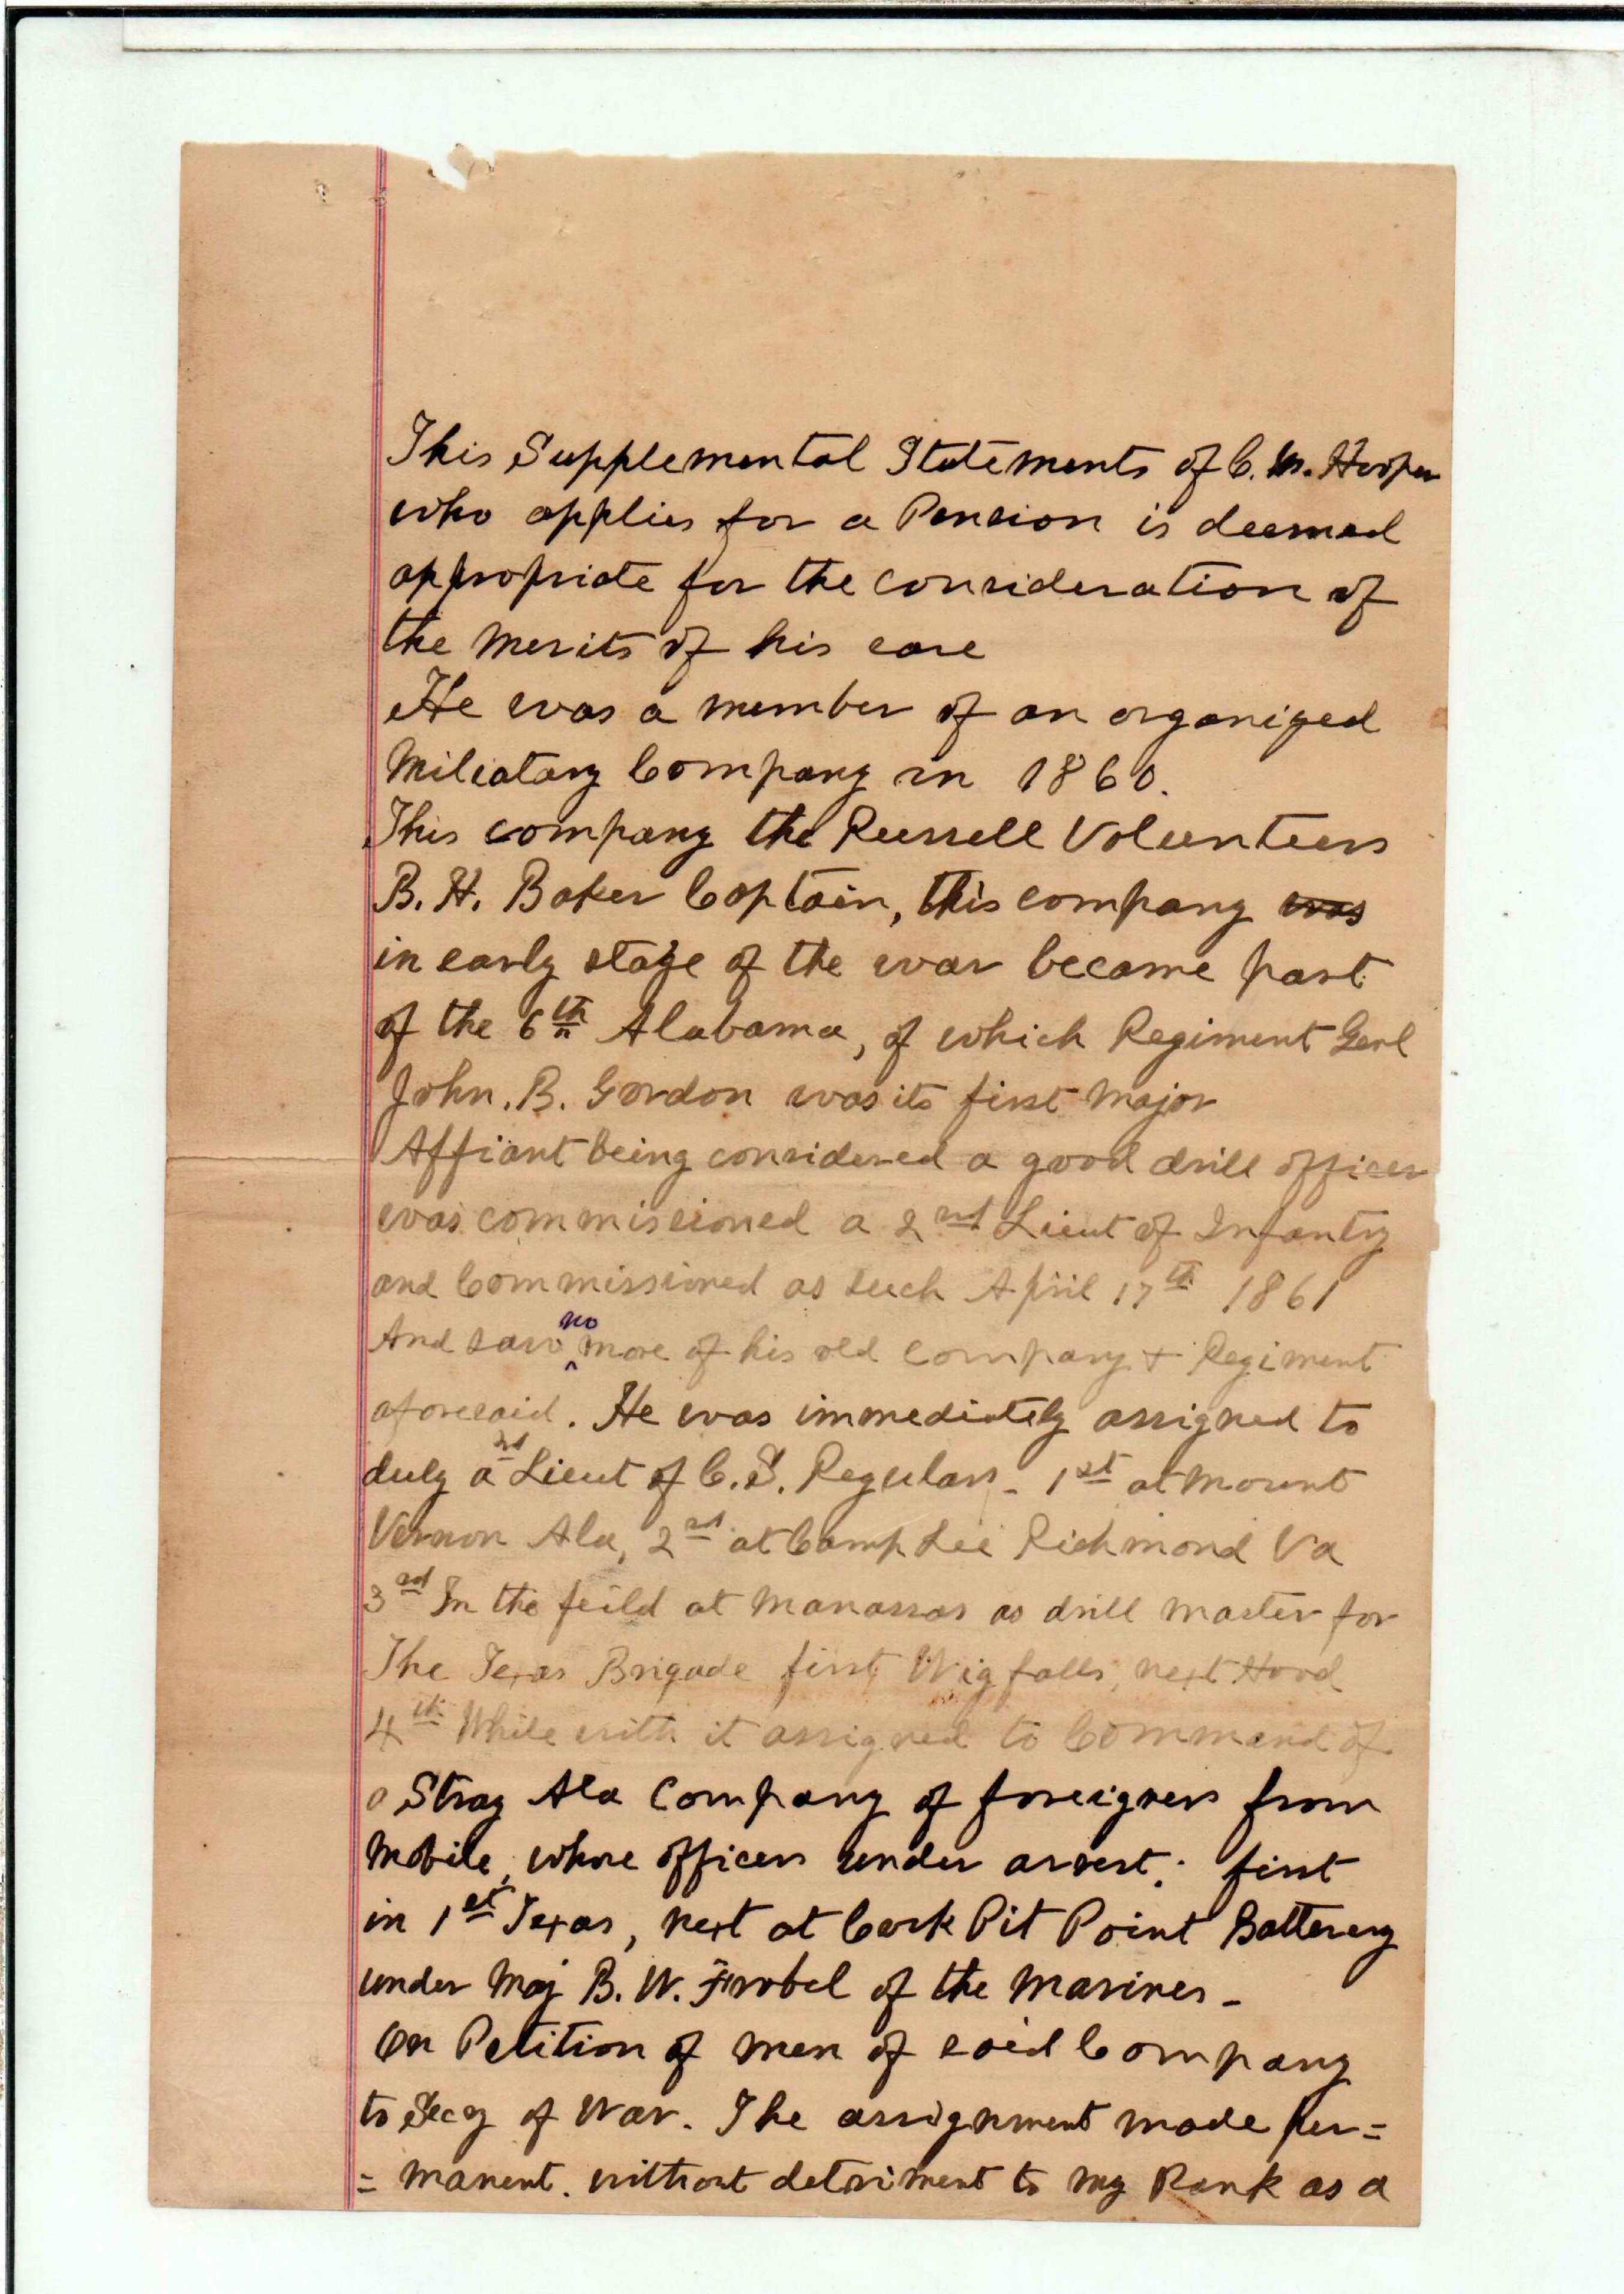 This Supplemental Statements of C. M. Hooper
who applies for a Pension is deemed
appropriate for the consideration of
the merits of his case
He was a member of an organized
Miliatary Company in 1860.
This company the Russell Volunteers
B. H. Baker Captain, this company was
in early stage of the war became part
of the 6th Alabama, of which Regiment Genl
John. B. Gordon was its first Major
Affiant being considered a good drill officer
was commissioned a 2nd Lieut of Infantry
and Commissioned as such April 17th 1861
And saw no more of his old company + Regiment
aforesaid. He was immediately assigned to
duty a 2nd Lieut of C.S. Regulars - 1st at Mount
Vernon Ala, 2nd at Camp Lee Richmond Va
3rd In the feild at Manassas as drill master for
The Texas Brigade first Wigfalls, next Hood
4th While with it assigned to Command of
a Stray Ala Company of foreigners from
Mobile, whose officers under arrest. first
in 1st Texas, next at Cock Pit Point Batterery
under Maj B. W. Frobel of the Marines -
On Petition of men of said Company
to Secy of War. The assignment made per=
= manent. without detriment to my Rank as a